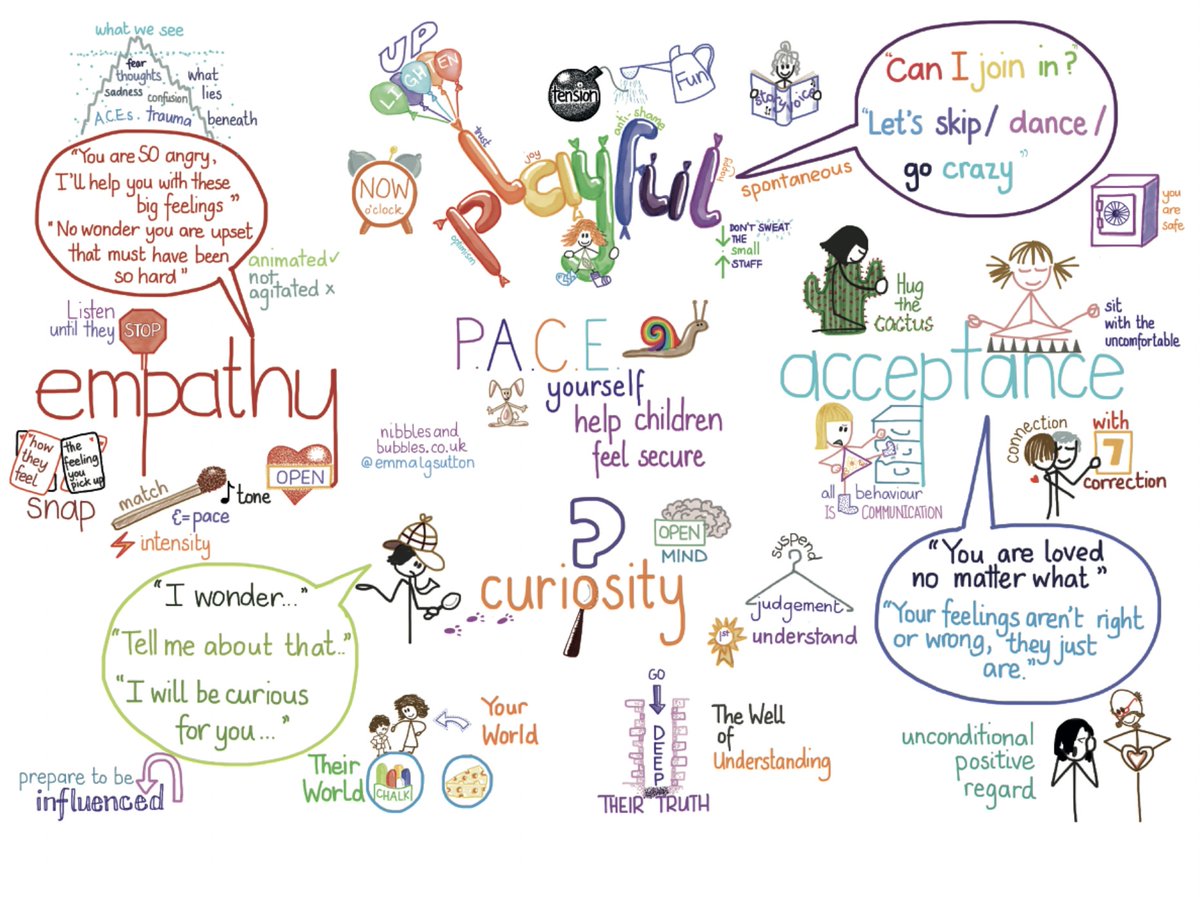 what we see
fear
thoughts
sadness
confusion
A.C.Es. trauma
what
lies
beneath
"You are SO angry,
I'll help you with these
big feelings"
"No wonder you are upset
that must have been
so hard"
animated ✓
not
agitated x
Listen
until they
STOP
empathy
how
they
feel
the
feeling
you
pick up
snap
match
tone
=pace
intensity
OPEN
UP
LIGHTEN
tension
Fun
"story voice"
NOW
o'clock
playful
trust
joy
anti-shame
happy
optimism
spontaneous
DON'T SWEAT
THE
small
STUFF
"Can I join in?"
"Let's skip/ dance /
go crazy"
you
are
safe
Hug
the
cactus
sit
with the
uncomfortable
P.A.C.E.
yourself
help children
feel secure
nibblesand
bubbles.co.uk
@emmalgsutton
acceptance
all behaviour
IS COMMUNICATION
connection
with
7
correction
"You are loved
no matter what"
"Your feelings aren't right
or wrong, they just
are."
unconditional
positive
regard
?
curiosity
OPEN
MIND
suspend
judgement
1st
understand
"I wonder..."
"Tell me about that.."
"I will be curious
for you..."
prepare to be
influenced
Your
World
Their
World
CHALK
GO
DEEP
THEIR TRUTH
The Well
of
Understanding